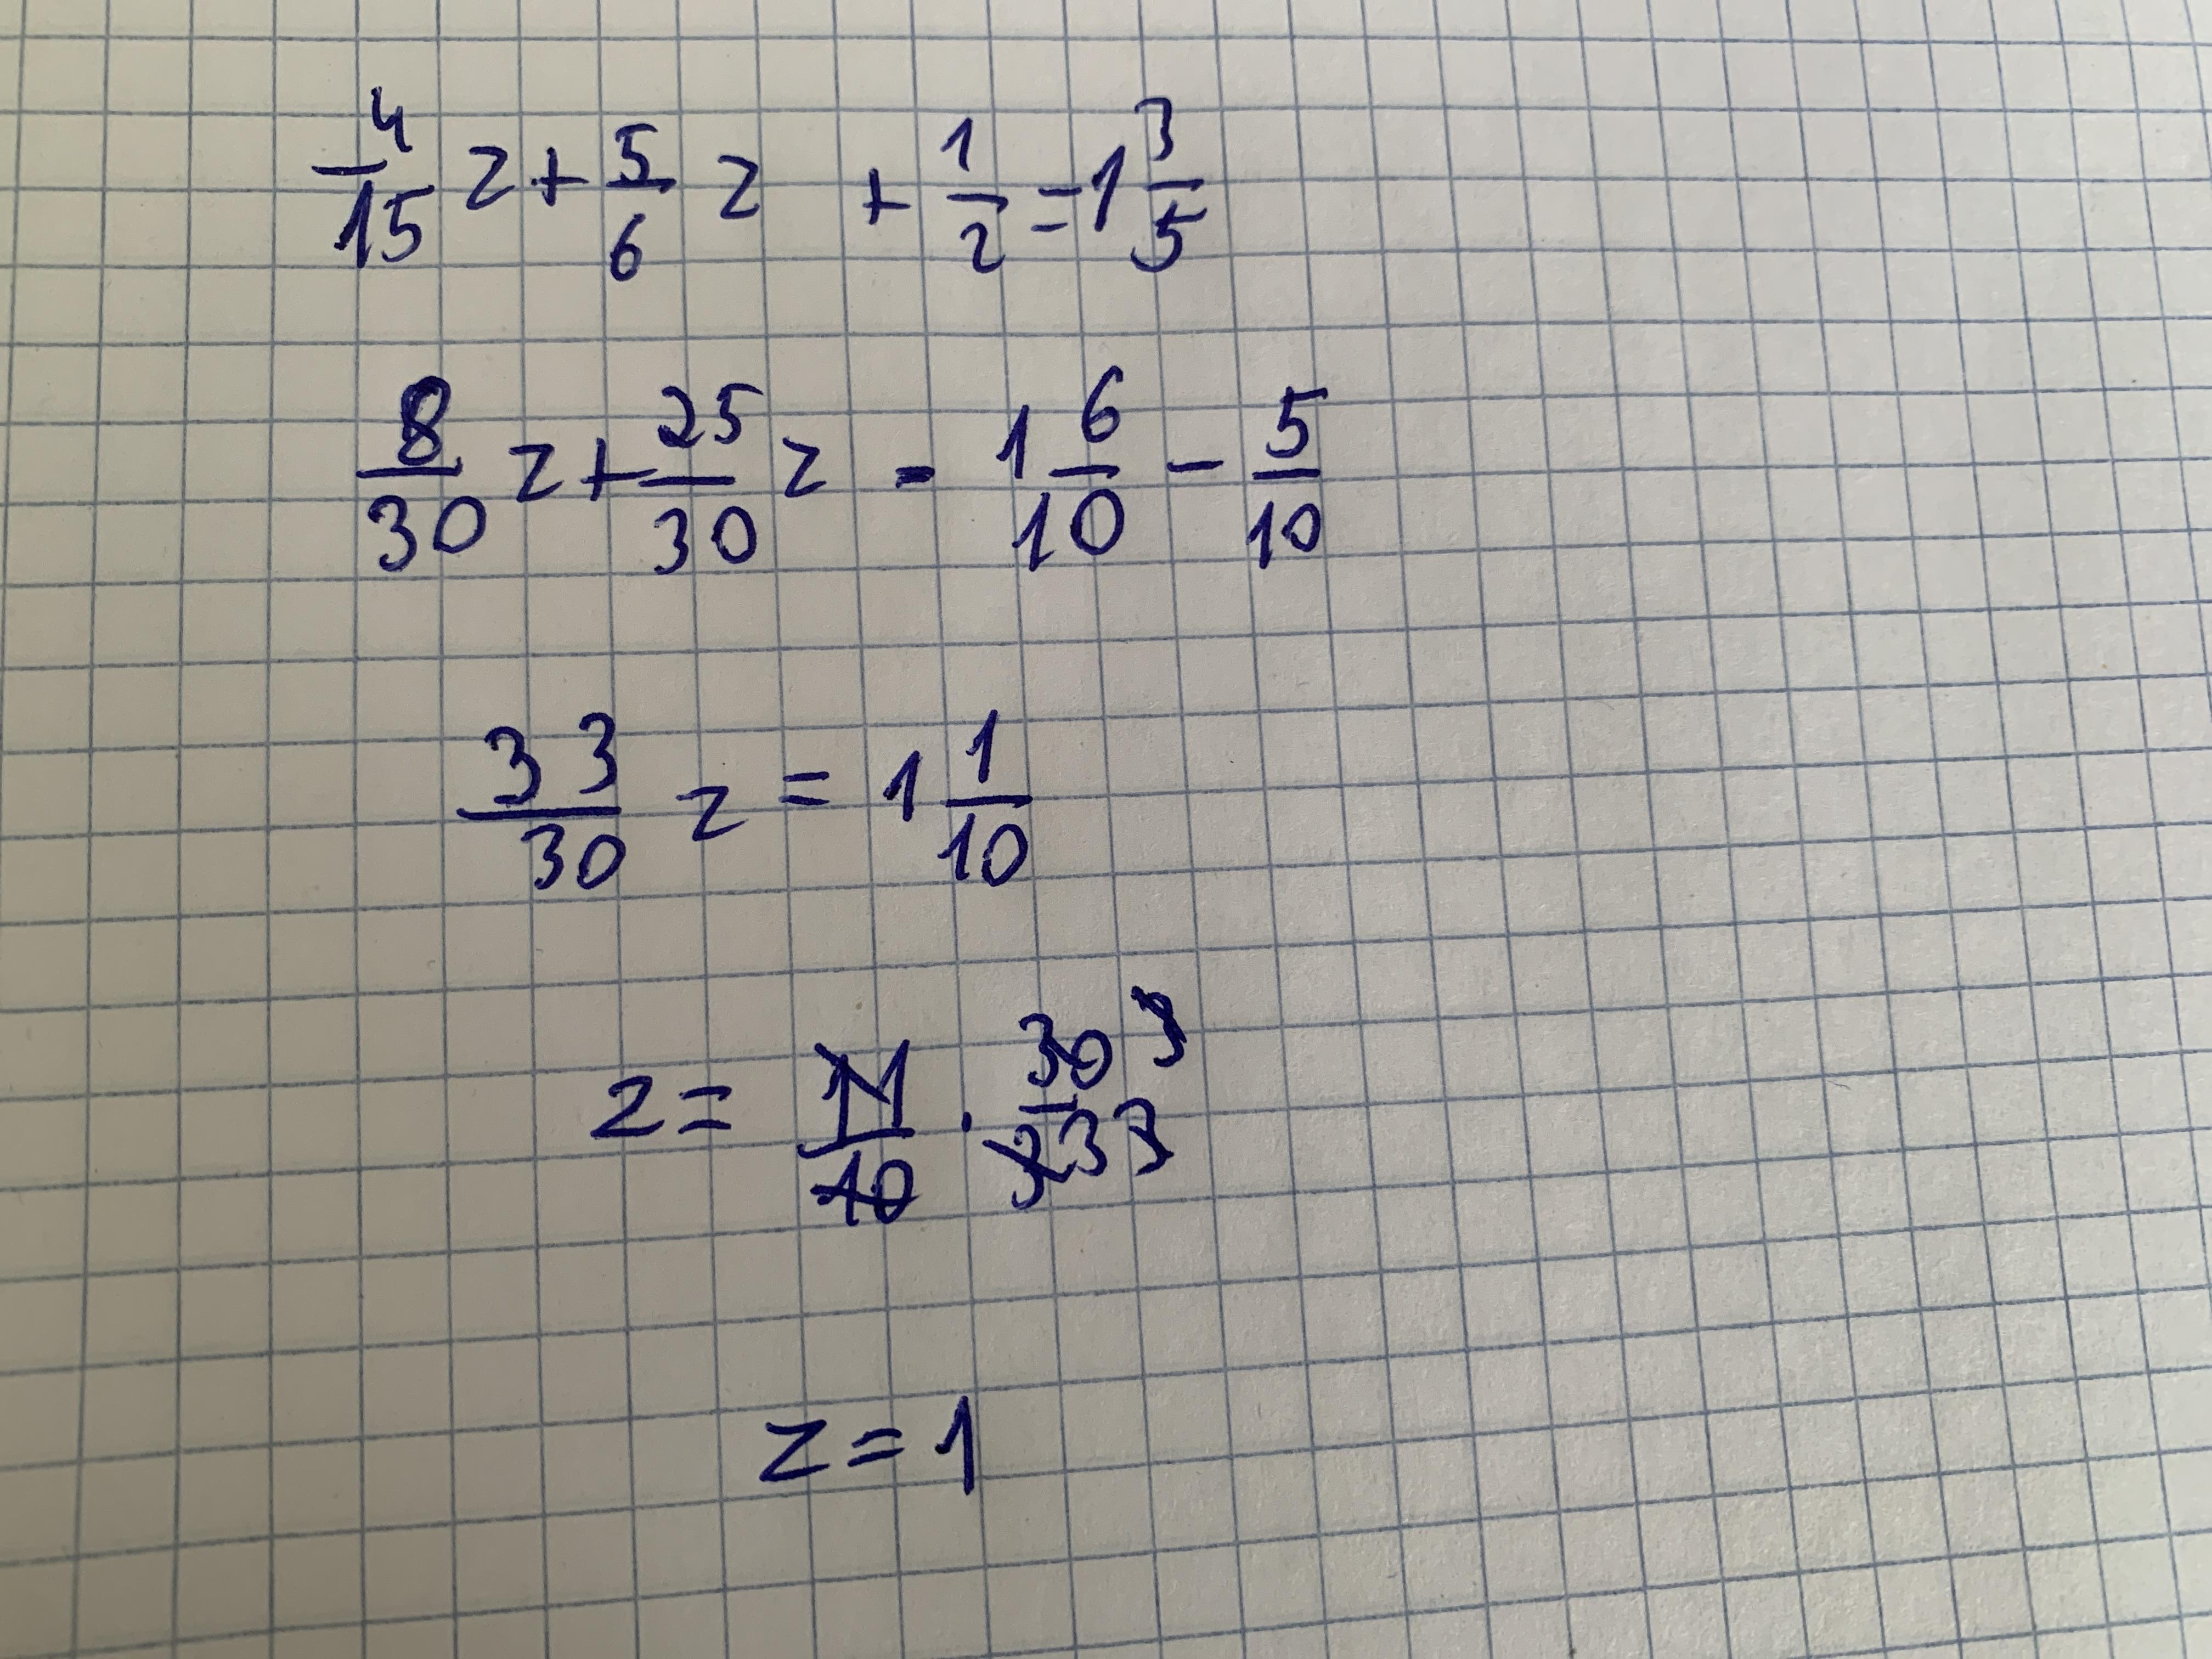 4/15 z + 5/6 z + 1/2 = 1 3/5
8/30 z + 25/30 z = 1 6/10 - 5/10
33/30 z = 1 1/10
z = 11/10 · 30 3/33 3
z = 1